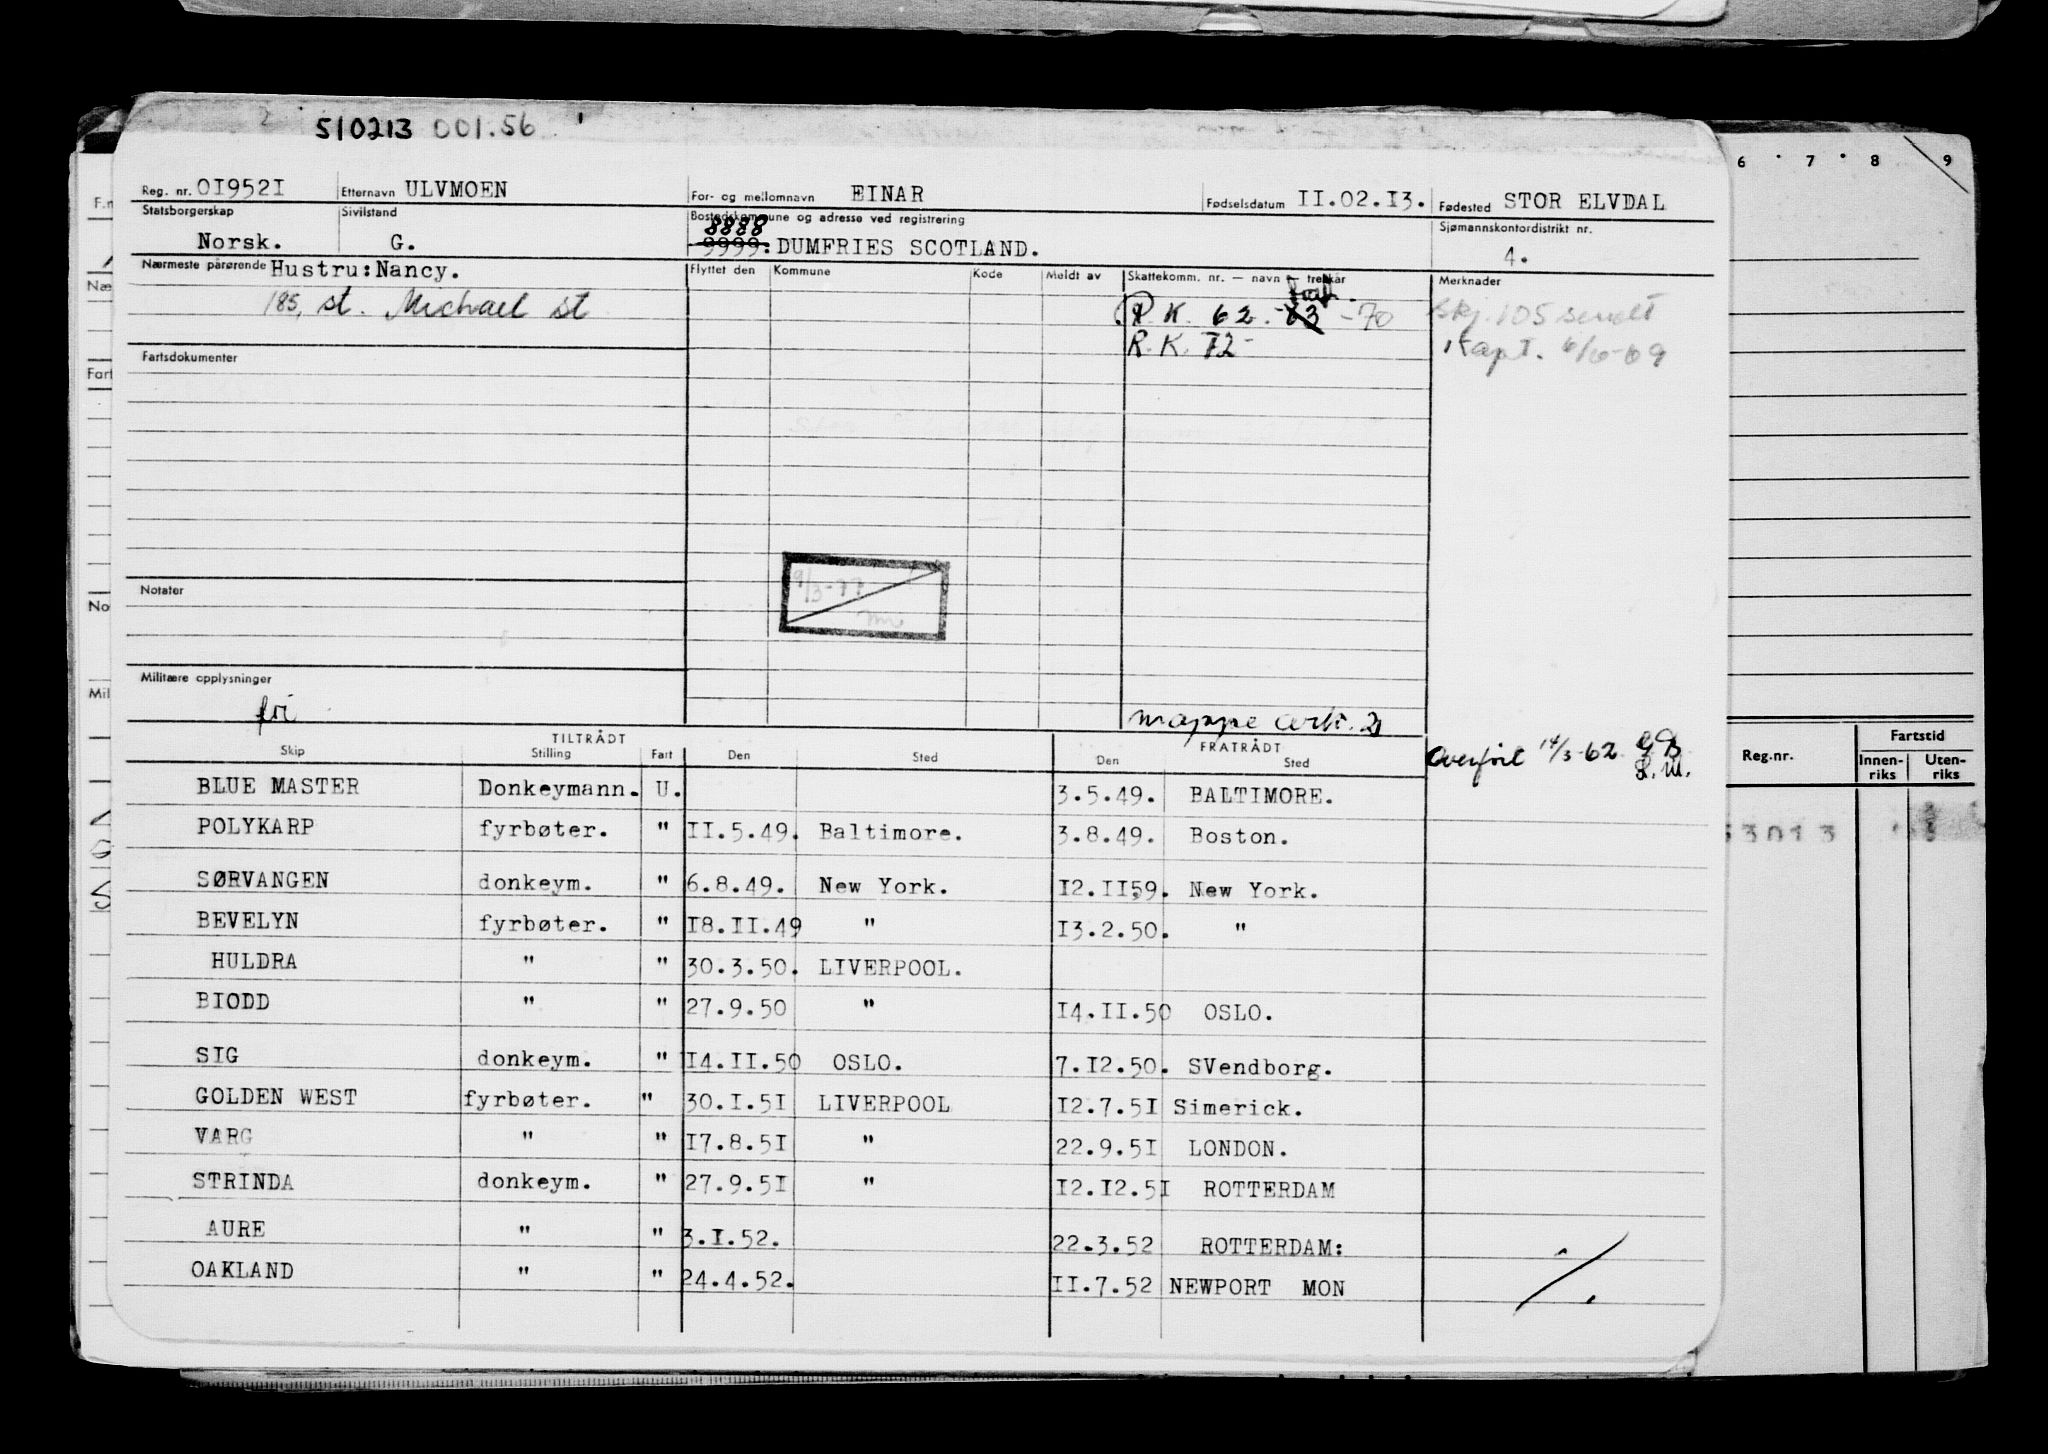 510213 001.56
6 . 7 . 8 9
Reg. nr. OI952I Etternavn ULVMOEN For- og mellomnavn EINAR Fødselsdatum II.02.I3. Fødested STOR ELVDAL
Statsborgerskap Sivilstand Bostedskommune og adresse ved registrering Sjømannskontordistrikt nr.
8888
Norsk. G. 9999: DUMFRIES SCOTLAND. 4.
Nærmeste pårørende Hustru:Nancy. Flyttet den Kommune Kode Meldt av Skattekomm. nr. — navn — trekkår Merknader
185, st. Michael st R. K. 62.-63 -70 Skj. 105 sendt
R. K. 72- Kapt. 6/6-69
Fartsdokumenter
9/3-77
Notater
Militære opplysninger
fri mappe ark. 2)
TILTRÅDT FRATRÅDT Overført 14/3-62
Skip Stilling Fart Den Sted Den Sted
Reg.nr. Fartstid
Innen-riks Uten-riks
BLUE MASTER Donkeymann. U. 3.5.49. BALTIMORE.
POLYKARP fyrbøter. " II.5.49. Baltimore. 3.8.49. Boston.
53013
SØRVANGEN donkeym. " 6.8.49. New York. I2.II59. New York.
BEVELYN fyrbøter. " I8.II.49 " I3.2.50. "
HULDRA " " 30.3.50. LIVERPOOL.
BIODD " " 27.9.50 " I4.II.50 OSLO.
SIG donkeym. " I4.II.50 OSLO. 7.I2.50. SVendborg.
GOLDEN WEST fyrbøter. " 30.I.5I LIVERPOOL I2.7.5I Simerick.
VARG " " I7.8.5I " 22.9.5I LONDON.
STRINDA donkeym. " 27.9.5I " I2.I2.5I ROTTERDAM
AURE " " 3.I.52. 22.3.52 ROTTERDAM:
OAKLAND " " 24.4.52. II.7.52 NEWPORT MON